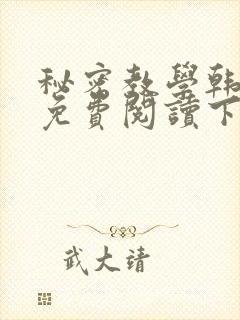 秘密教學韩
免費閱讀下
武大靖